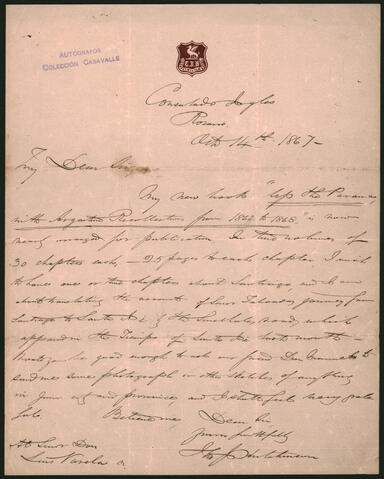 AUTÓGRAFOS
COLECCIÓN CASAVALLE
T.J.H.
Consulado Ingles
Rosario,
Octr 14th 1867—
My Dear Sir,
My new work "Up the Parana,
with Argentine Recollections from 1862 to 1868," is now
nearly arranged for publication. In two volumes of
30 chapters each, — 25 pages to each chapter. I wish
to have one or two chapters about Santiago, and I am
about translating the account of Senor journey from
Santiago to Santa Fé by the road, which
appeared in the Tiempo of Santa Fé last month—
be good enough to ask our friend Don to
send me some photograph or the sketches of anything
in your city and province, and I shall feel very grate
ful. Believe me,
Dear Sir
yours faithfully
Thos J Hutchinson
Al Senor Don
Luis Varela